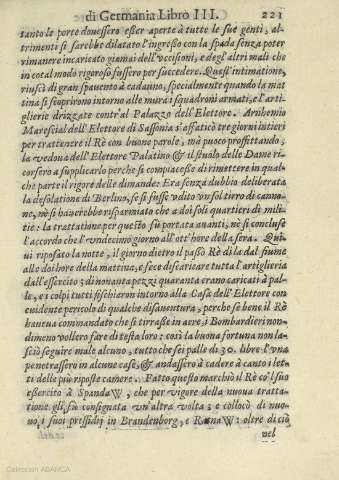 di Germania Libro III. 221
tanto le porte douessero esser aperte à tutte le sue genti, al-
trimenti si sarebbe dilatato l'ingresso con la spada senza poter
rimanere incaricato giamai dell'vccisioni, e degl'altri mali che
in cotal modo rigoroso fussero per succedere. Quest'intimatione,
riuscì di gran spauento à cadauno, specialmente quando la mat
tina si scuoprirono intorno alle mura i squadroni armati, e l'arti-
glierie drizzate contr'al Palazzo dell'Elettore. Arnhemio
Marescial dell'Elettore di Sassonia s'affaticò tre giorni intieri
per trattenere il Rè con buone parole, mà puoco proffittando,
la vedoua dell'Elettore Palatino & il stuolo delle Dame ri-
corsero a supplicarlo perche si compiacesse di rimettere in qual
che parte il rigore delle dimande: Era senza dubbio deliberata
la desolatione di Berlino, se si fusse vdito vn sol tirro di canno-
ne, nè si hauerebbe risparmiato che a doi soli quartieri di mili-
tie: la trattatione per questo fù portata auanti, nè si concluse
l'accordo che l'vndecimo giorno all'ott'hore della sera. Qui-
ui riposato la notte, il giorno dietro il passò Rè di la dal fiume
alle doi hore della mattina, e fece discaricare tutta l'artiglieria
dall'essercito; di nonanta pezzi quaranta erano caricati à pal-
le, e i colpi tutti fischiaron intorno alla Casa dell'Elettore con
euidente pericolo di qualche disauentura, perche se bene il Rè
haueua commandato che si tirrasse in aere, i Bombardieri non-
dimeno vollero fare di testa loro: così la buona fortuna non la-
sciò seguire male alcuno, tutto che sei palle di 30. libre l'vna
penetrassero in alcune case, & andassero à cadere à canto i let-
ti delle più riposte camere. Fatto questo marchiò il Rè co'l suo
essercito à SpandaW, che per vigore della nuoua tratta-
tione gli fù consignata vn'altra volta; e collocò di nuo-
uo, i suoi pressidij in Brandenborg, e RatnaW: oltre di ciò
nel
Colección ABANCA